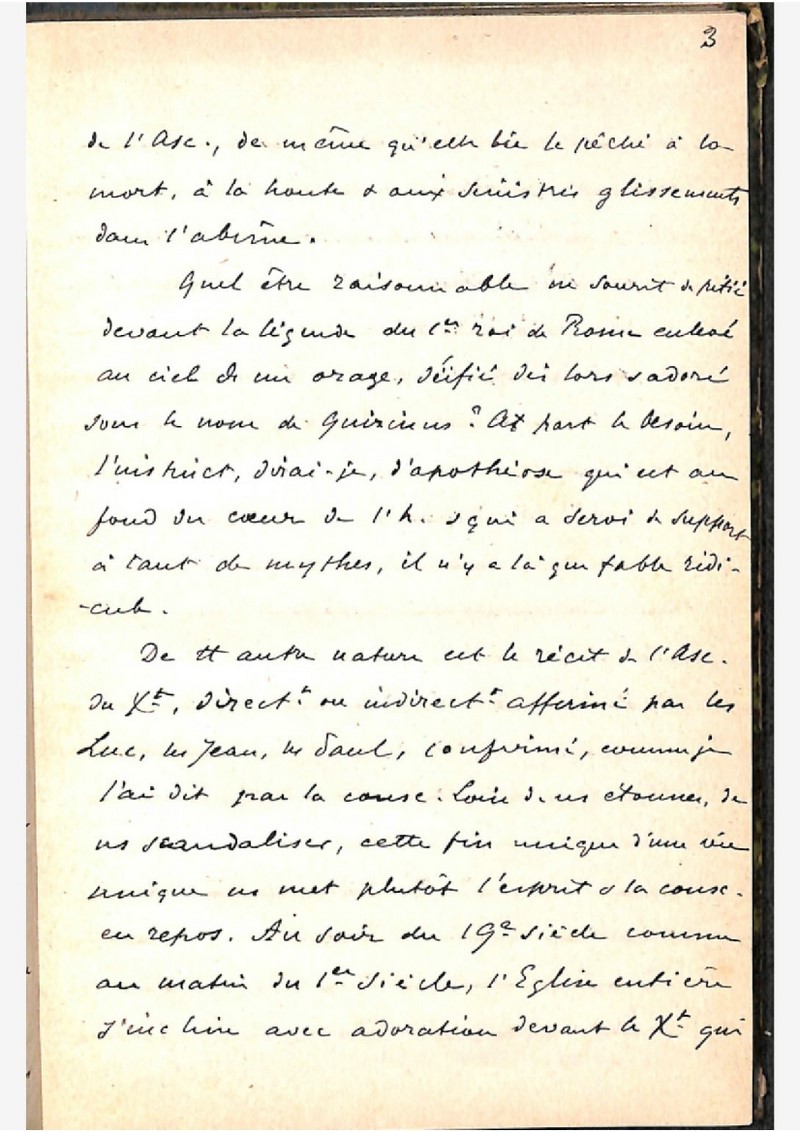 3
de l'Asc., de même qu'elle lie le péché à la
mort, à la honte & aux sinistres glissements
dans l'abîme.
Quel être raisonnable ne sourit de pitié
devant la légende du 1er roi de Rome enlevé
au ciel ds un orage, déifié dès lors & adoré
sous le nom de Quirinus? A part le besoin,
l'instinct, dirai-je, d'apothéose qui est au
fond du cœur de l'h. & qui a servi de support
à tant de mythes, il n'y a là que fable ridi-
-cule.
De tt autre nature est le récit de l'Asc.
du Xt, directt ou indirectt affirmé par les
Luc, les Jean, les Paul, confirmé, comme je
l'ai dit par la consc. Loin de ns étonner, de
ns scandaliser, cette fin unique d'une vie
unique ns met plutôt l'esprit & la consc.
en repos. Au soir du 19e siècle comme
au matin du 1er siècle, l'Eglise entière
s'incline avec adoration devant le Xt qui